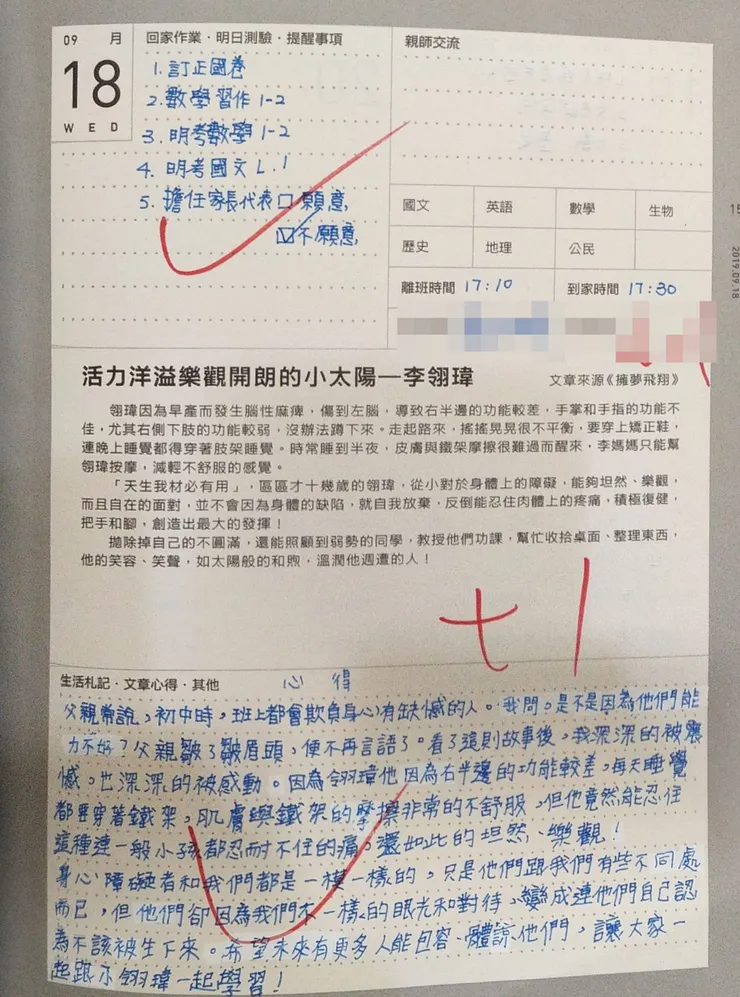 09 月
18
WED
回家作業·明日測驗·提醒事項
1. 訂正國卷
2. 數學習作1-2
3. 明考數學1-2
4. 明考國文L.1
5. 擔任家長代表□願意,
☑不願意,
親師交流
國文 英語 數學 生物
歷史 地理 公民
離班時間 17:10 到家時間 17:30
2019.09.18
活力洋溢樂觀開朗的小太陽—李翎瑋
文章來源《擁夢飛翔》
翎瑋因為早產而發生腦性麻痺,傷到左腦,導致右半邊的功能較差,手掌和手指的功能不
佳,尤其右側下肢的功能較弱,沒辦法蹲下來。走起路來,搖搖晃晃很不平衡,要穿上矯正鞋,
連晚上睡覺都得穿著肢架睡覺。時常睡到半夜,皮膚與鐵架摩擦很難過而醒來,李媽媽只能幫
翎瑋按摩,減輕不舒服的感覺。
「天生我材必有用」,區區才十幾歲的翎瑋,從小對於身體上的障礙,能夠坦然、樂觀,
而且自在的面對,並不會因為身體的缺陷,就自我放棄,反倒能忍住肉體上的疼痛,積極復健,
把手和腳,創造出最大的發揮!
拋除掉自己的不圓滿,還能照顧到弱勢的同學,教授他們功課,幫忙收拾桌面、整理東西,
他的笑容、笑聲,如太陽般的和煦,溫潤他週遭的人!
+1
生活札記·文章心得·其他
心得
父親常說,初中時,班上都會欺負身心有缺憾的人。我問。是不是因為他們能
力不好?父親皺了皺眉頭,便不再言語了。看了這則故事後,我深深的被震
憾,也深深的被感動。因為翎瑋他因為右半邊的功能較差,每天睡覺
都要穿著鐵架,肌膚與鐵架的摩擦非常的不舒服,但他竟然能忍住
這種連一般小孩都忍耐不住的痛,還如此的坦然、樂觀!
身心障礙者和我們都是一模一樣的,只是他們跟我們有些不同處
而已,但他們卻因為我們不一樣的眼光和對待,變成連他們自己認
為不該被生下來。希望未來有更多人能包容、體諒他們,讓大家一
起跟李翎瑋一起學習!